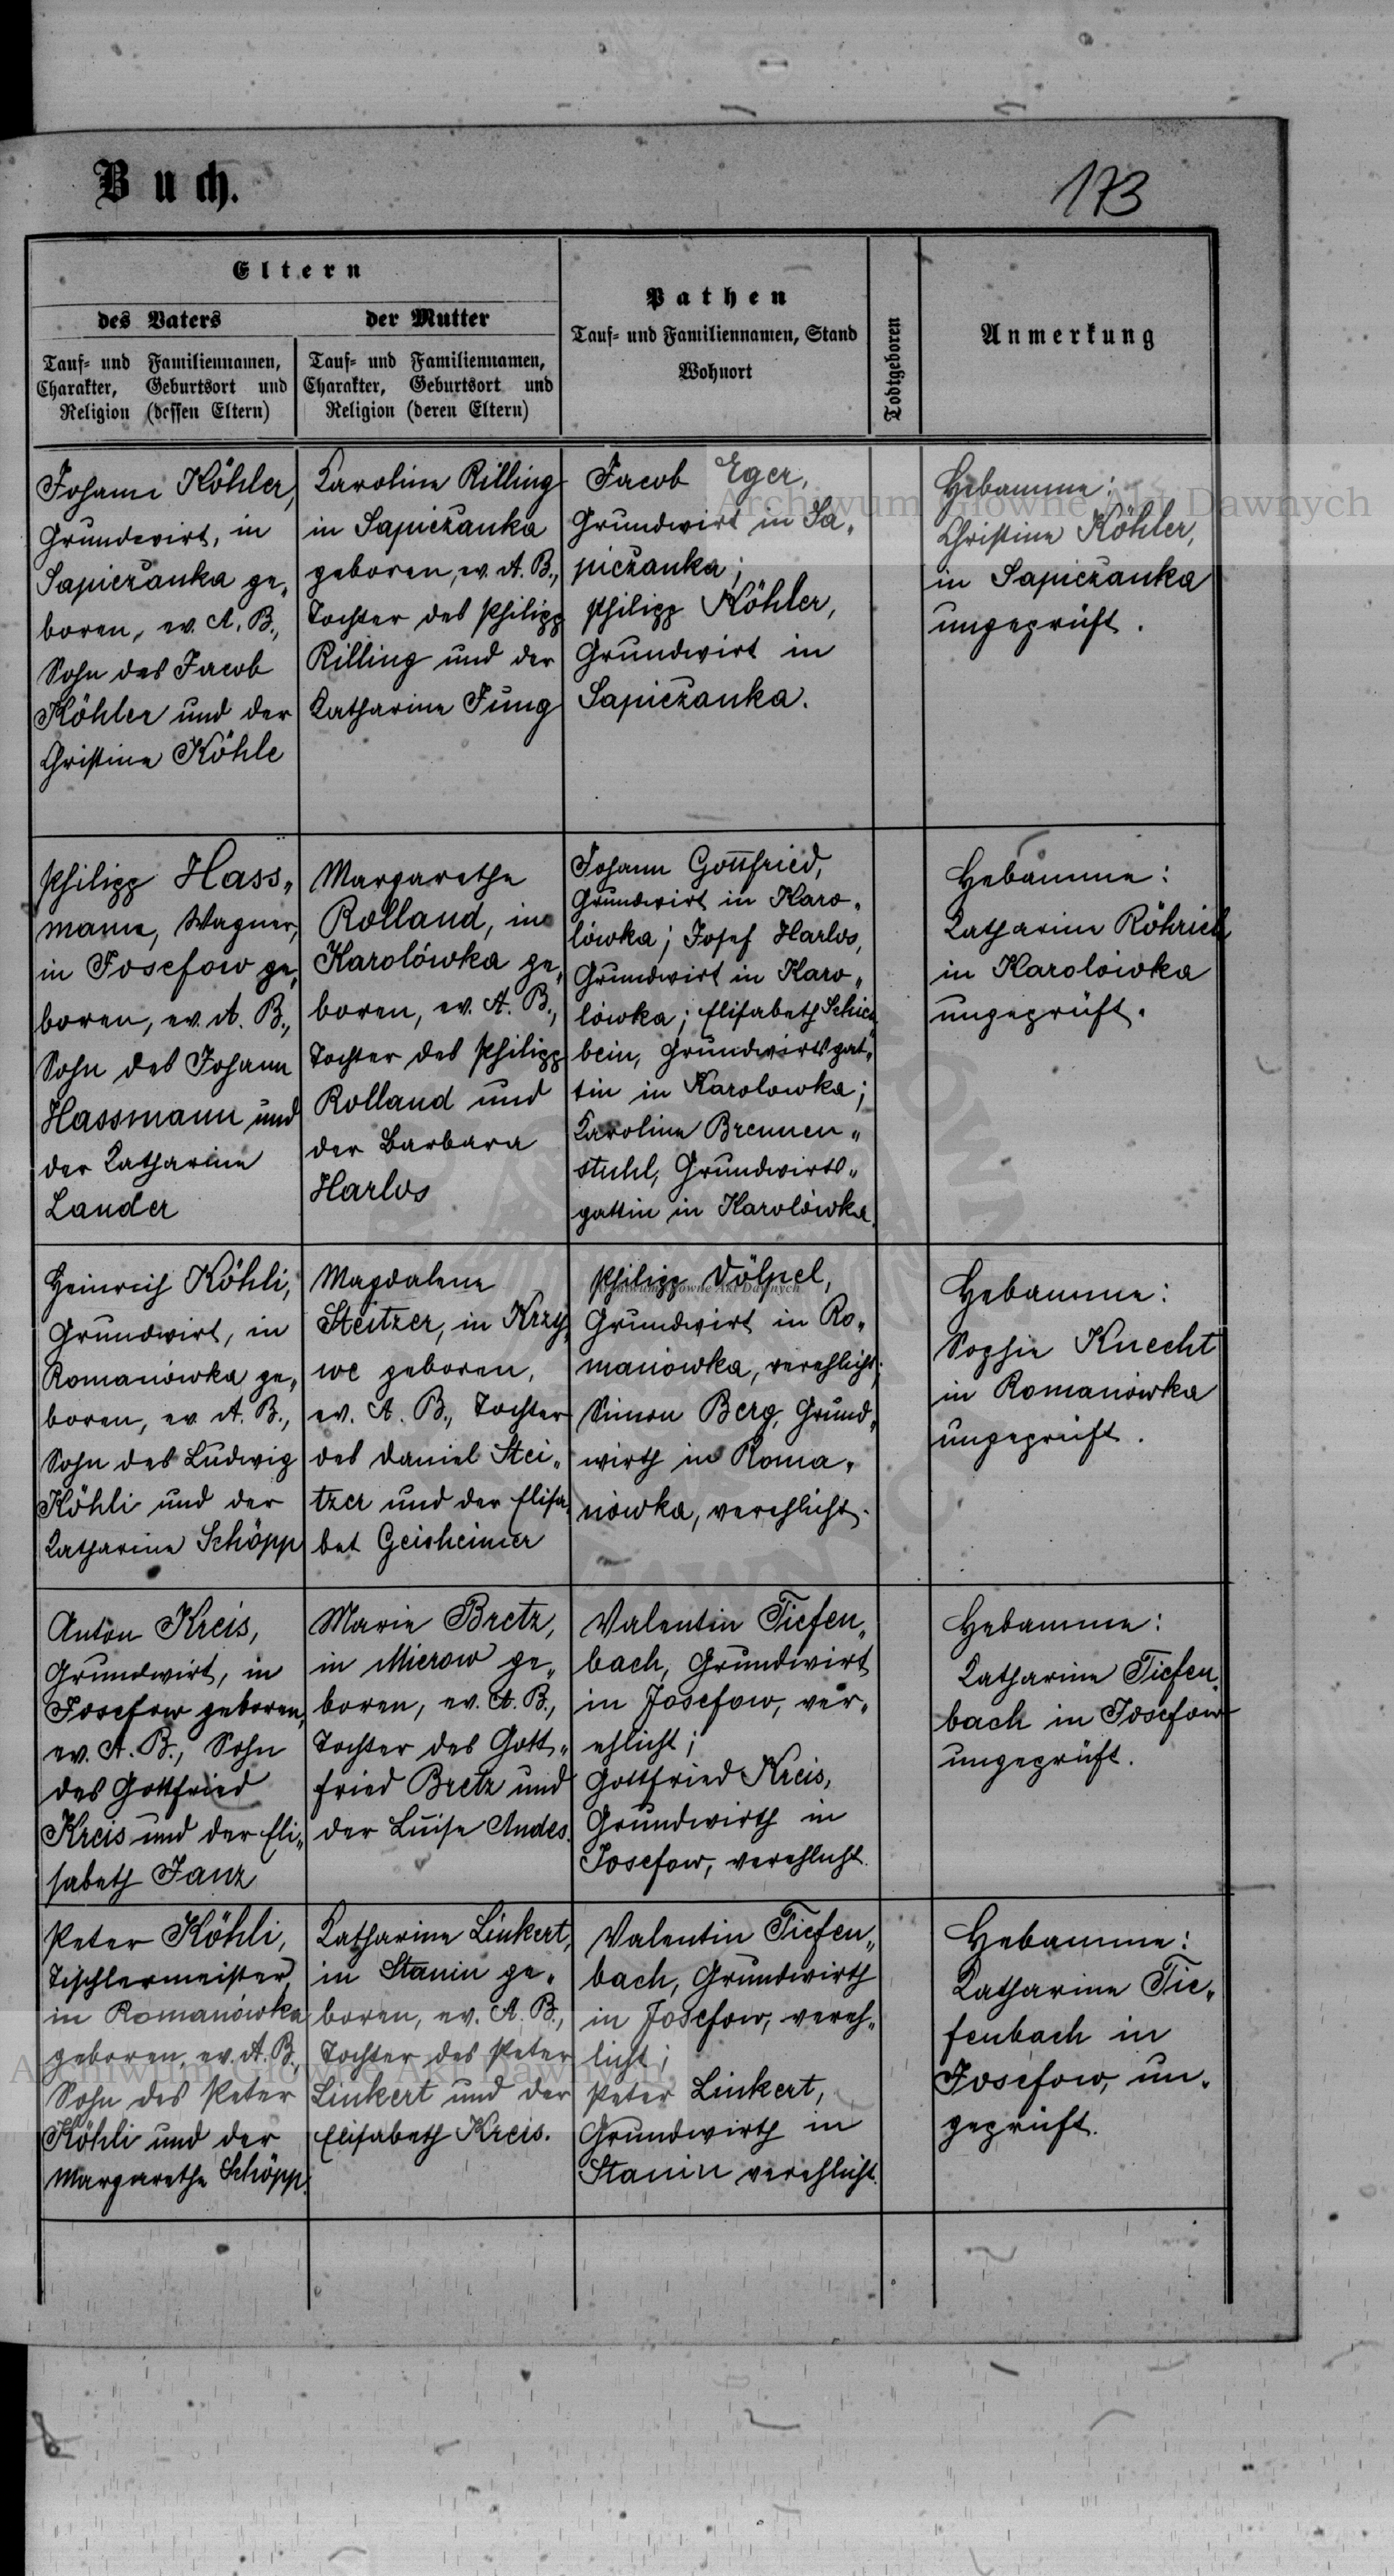 Buch.
173
Eltern
des Vaters
Tauf- und Familiennamen,
Charakter, Geburtsort und
Religion (dessen Eltern)
der Mutter
Tauf- und Familiennamen,
Charakter, Geburtsort und
Religion (deren Eltern)
Pathen
Tauf- und Familiennamen, Stand
Wohnort
Todtgeboren
Anmerkung
Johann Köhler,
Grundwirt, in
Sapieżanka ge„
boren, ev. A. B.,
Sohn des Jacob
Köhler und der
Christine Köhle
Karoline Rilling
in Sapieżanka
geboren, ev. A. B.,
Tochter des Philipp
Rilling und der
Katharine Jung
Jacob Eger,
Grundwirt in Sa„
pieżanka;
Philipp Köhler,
Grundwirt in
Sapieżanka.
Hebamme:
Christine Köhler,
in Sapieżanka
ungeprüft.
Archiwum Główne Akt Dawnych
Philipp Hass„
mann, Wagner,
in Josefow ge„
boren, ev. A. B.,
Sohn des Johann
Hassmann und
der Katharine
Lander
Margarethe
Rolland, in
Karolówka ge„
boren, ev. A. B.,
Tochter des Philipp
Rolland und
der Barbara
Harlos
Johann Gottfried,
Grundwirt in Karo„
lówka; Josef Harlos,
Grundwirt in Karo„
lówka; Elisabeth
bein, Grundwirtsgat„
tin in Karolowka;
Karoline Brennen„
stuhl, Grundwirts„
gattin in Karolówka.
Hebamme:
Katharine Röhrich
in Karolówka
ungeprüft.
Heinrich Köhli,
Grundwirt, in
Romanówka ge„
boren, ev A. B.,
Sohn des Ludwig
Köhli und der
Katharine Schöpp
Magdalene
Steitzer, in Krzy„
we geboren,
ev. A. B., Tochter
des Daniel Stei„
tzer und der Elisa„
bet Geisheimer
Philipp Völpel,
Archiwum Główne Akt Dawnych
Grundwirt in Ro„
manówka, verehlicht;
Simon Berg, Grund„
wirth in Roma„
nówka, verehlicht.
Hebamme:
Sophie Knecht
in Romanówka
ungeprüft.
Anton Kreis,
Grundwirt, in
Josefow geboren,
ev. A. B., Sohn
des Gottfried
Kreis und der Eli„
sabeth Janz
Marie Bretz,
in Mierow ge„
boren, ev. A. B.,
Tochter des Gott„
fried Bretz und
der Luise Andes.
Valentin Tiefen„
bach, Grundwirt
in Josefow, ver„
ehlicht;
Gottfried Kreis,
Grundwirth in
Josefow, verehlicht.
Hebamme:
Katharine Tiefen„
bach in Josefow
ungeprüft.
Peter Köhli,
Tischlermeister,
in Romanówka
geboren, ev. A. B.,
Sohn des Peter
Köhli und der
Margarethe Schöpp.
Katharine Linkert,
in Stanin ge„
boren, ev. A. B.,
Tochter des Peter
Linkert und der
Elisabeth Kreis.
Valentin Tiefen„
bach, Grundwirth
in Josefow, vereh„
licht;
Peter Linkert,
Grundwirth in
Stanin verehlicht.
Hebamme:
Katharine Tie„
fenbach in
Josefow, un„
geprüft.
Archiwum Główne Akt Dawnych